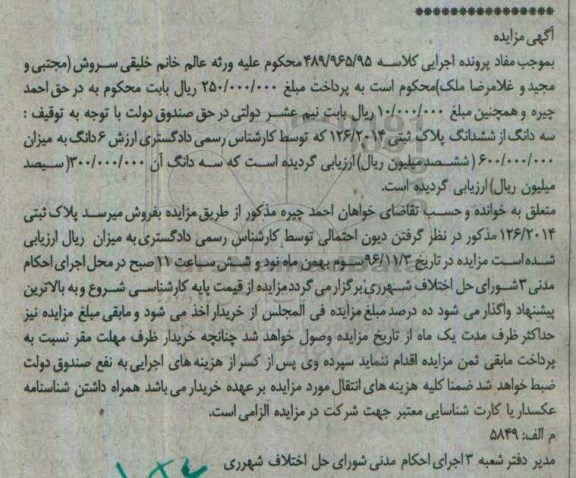 ****************
آگهی مزایده
بموجب مفاد پرونده اجرایی کلاسه ۴۸۹/۹۶۵/۹۵ محکوم علیه ورثه عالم خانم خلیقی سروش (مجتبی و
مجید و غلامرضا ملک) محکوم است به پرداخت مبلغ ۲۵۰/۰۰۰/۰۰۰ ریال بابت محکوم به در حق احمد
چیره و همچنین مبلغ ۱۰/۰۰۰/۰۰۰ ریال بابت نیم عشر دولتی در حق صندوق دولت با توجه به توقیف :
سه دانگ از ششدانگ پلاک ثبتی ۱۲۶/۲۰۱۴ که توسط کارشناس رسمی دادگستری ارزش ۶ دانگ به میزان
۶۰۰/۰۰۰/۰۰۰ (ششصد میلیون ریال) ارزیابی گردیده است که سه دانگ آن ۳۰۰/۰۰۰/۰۰۰ (سیصد
میلیون ریال) ارزیابی گردیده است.
متعلق به خوانده و حسب تقاضای خواهان احمد چیره مذکور از طریق مزایده بفروش میرسد پلاک ثبتی
۱۲۶/۲۰۱۴ مذکور در نظر گرفتن دیون احتمالی توسط کارشناس رسمی دادگستری به میزان ریال ارزیابی
شده است مزایده در تاریخ ۹۶/۱۱/۳ سوم بهمن ماه نود و شش ساعت ۱۱ صبح در محل اجرای احکام
مدنی ۳ شورای حل اختلاف شهرری برگزار می گردد مزایده از قیمت پایه کارشناسی شروع و به بالاترین
پیشنهاد واگذار می شود ده درصد مبلغ مزایده فی المجلس از خریدار اخذ می شود و مابقی مبلغ مزایده نیز
حداکثر ظرف مدت یک ماه از تاریخ مزایده وصول خواهد شد چنانچه خریدار ظرف مهلت مقرر نسبت به
پرداخت مابقی ثمن مزایده اقدام ننماید سپرده وی پس از کسر از هزینه های اجرایی به نفع صندوق دولت
ضبط خواهد شد ضمنا کلیه هزینه های انتقال مورد مزایده بر عهده خریدار می باشد همراه داشتن شناسنامه
عکسدار یا کارت شناسایی معتبر جهت شرکت در مزایده الزامی است.
م الف: ۵۸۴۹
مدیر دفتر شعبه ۳ اجرای احکام مدنی شورای حل اختلاف شهرری